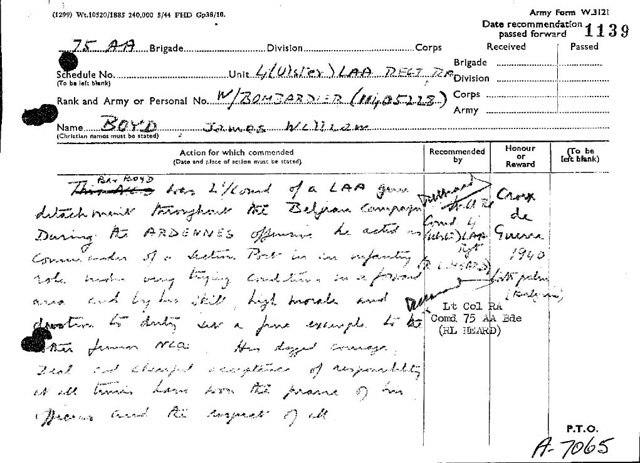 (1299) Wt.10520/1885 240,000 5/44 FHD Gp38/10.
Army Form W.3121
Date recommendation passed forward 1139
75 AA Brigade Division Corps
Received Passed
Schedule No.
(To be left blank)
Unit 4 (Ulster) LAA REGT RA
Brigade
Division
Corps
Army
Rank and Army or Personal No. W/BOMBARDIER
Name BOYD James William
(Christian names must be stated)
Action for which commended
(Date and place of action must be stated)
Recommended by
Honour or Reward
(To be left blank)
Bdr BOYD
was 2i/Comd of a LAA gun
detachment throughout the Belgian Campaign
During the ARDENNES offensive he acted as
Commander of a Section Post in an infantry
role under very trying conditions in a forward
area and by his skill, high morale and
devotion to duty set a fine example to the
other junior NCOs. His dogged courage,
zeal and cheerful acceptance of responsibility
at all times have won the praise of his
officers and the respect of all
Lt Col RA
Comd 4
(Ulster) LAA
Regt
Lt Col RA
Comd 75 AA Bde
(RL HEARD)
Croix
de
Guerre
1940
with palm
(Belgian)
P.T.O.
A-7065